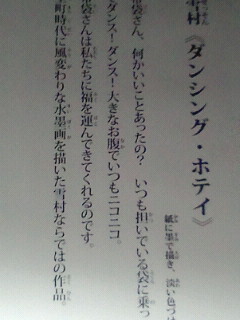 雪村《ダンシング・ホテイ》
紙に墨で描き、淡い色づ
袋さん、何かいいことあったの？ いつも担いでいる袋に乗っ
ダンス！ダンス！大きなお腹でいつもニコニコ。
袋さんは私たちに福を運んできてくれるのです。
町時代に風変わりな水墨画を描いた雪村ならではの作品。